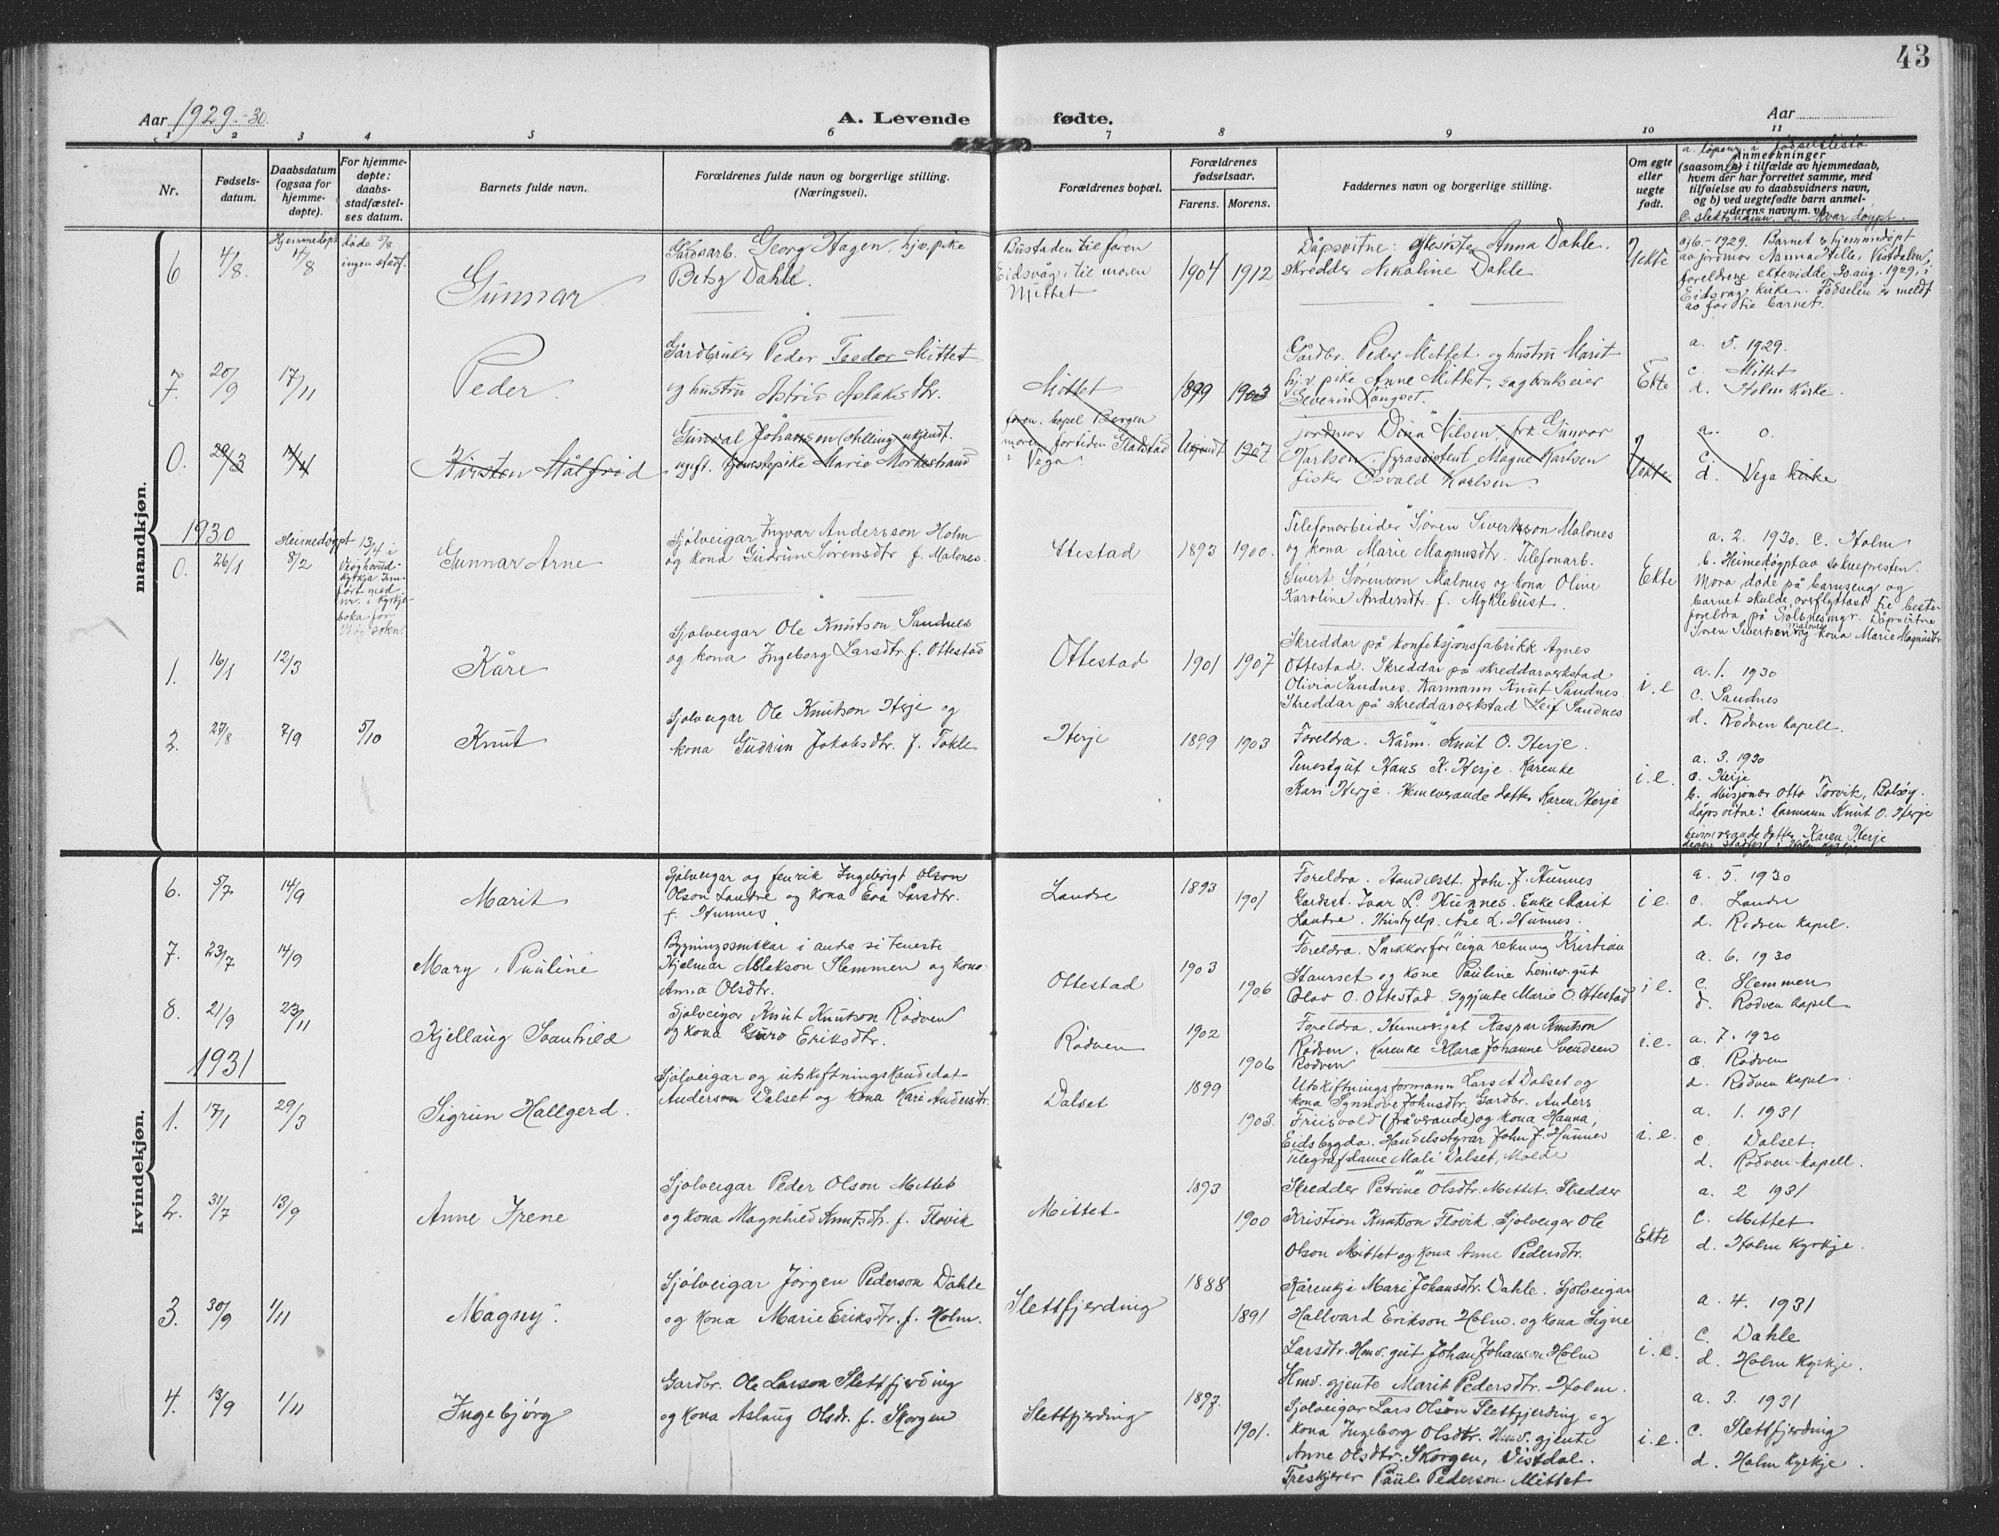 43
Aar 1929.-30.
A. Levende fødte.
Aar
1 2 3 4 5 6 7 8 9 10 11
Nr.
Fødsels-
datum.
Daabsdatum
(ogsaa for
hjemme-
døpte).
For hjemme-
døpte:
daabs-
stadfæstel-
ses datum.
Barnets fulde navn.
Forældrenes fulde navn og borgerlige stilling.
(Næringsvei).
Forældrenes bopæl.
Forældrenes
fødselsaar.
Farens. Morens.
Faddernes navn og borgerlige stilling.
Om egte
eller
uegte
født.
a. løpenr. i fødselsliste
Anmerkninger
(saasom a) i tilfælde av hjemmedaab,
hvem der har forrettet samme, med
tilføielse av to daabsvidners navn,
og b) ved uegtefødte barn anmel-
derens navn m. v.
c. slektsnamn. d. kvar døypt.
mandkjøn.
6 4/8. Hjemmedøpt 4/8 døde 5/8
ingen stadf.
Gunnar
Gårdsarb. Georg Hagen, hjv. pike
Betsy Dahle.
Bustaden til faren
Eidsvåg, til moren
Mittet
1904 1912
Dåpsvitne: Anna Dahle.
skredder Nikoline Dahle
Uekte
a) 6 - 1929. Barnet er hjemmedøpt
av jordmor Nanna Hille, Vistdalen,
foreldrene ektevidde 30. aug. 1929, i
Eidsvåg kirke. Fødselen er meldt
av far til barnet.
7. 20/9 17/11
Peder
Gårdbruker Peder Teodor Mittet
og hustru Astrid Aslaksdtr.
Mittet
1899 1903
Gårdbr. Peder Mittet og hustru Marit
hjv. pike Anne Mittet, sagbrukseier
Severin Langset.
Ekte
a. 5. 1929.
c. Mittet
d. Holm Kirke.
0. 29/3
Kirsten Målfrid
Gunval Johansen (stilling ukjendt.
ugift. tjenestepike Marie Morkestrand
faren. bopel Bergen
moren fortiden Gladstad
i Vega.
Ukjendt 1907
Jordmor Dina Nilsen, frk. Gunvor
Karlsen, Magne Karlsen
fisker Osvald Karlsen.
Uekte
a. 0.
c.
d. Vega kirke
1930
0. 26/1 Heimedøypt 8/2 13/4 i
kyrkja Inn-
ført med
nr. i kyrkje-
boka for
Gunnar Arne
Sjølveigar Ingvar Andersson Holm
og kona Gudrun Sørensdtr. f. Malones.
Ottestad
1893 1900.
Telefonarbeider Søren Sivertsson Malones
og kona Marie Magnusdtr. Telefonarb.
Sivert Sørenson Malones og kona Oline
Karoline Andersdtr. f. Myklebust.
Ekte
a. 2. 1930. c. Holm
b. Heimedøypt av soknepresten.
Mora døde på barnseng og
barnet skulde overflyttast til beste-
foreldra på Dåpsvitne
Søren Sivertsen Malones og kona Marie Magnusdtr.
1. 16/1 12/3
Kåre
Sjølveigar Ole Knutson Sandnes
og kona Ingeborg Larsdtr. f. Ottestad
Ottestad
1901 1907
Skreddar på konfeksjonsfabrikk Agnes
Ottestad. Skreddar på skreddarverkstad
Olivia Sandnes. Kårmann Knut Sandnes
Skreddar på skreddarverkstad Leif Sandnes
i. e
a. 1. 1930
c. Sandnes
d. Rødven kapell.
2. 27/8 7/9 5/10
Knut
Sjølveigar Ole Knutson Herje og
kona Gudrun Jakobsdtr. f. Tokle
Herje
1899 1903
Foreldra. Kårm. Knut O. Herje.
Tenestgut Hans K. Herje. Kårenke
Kari Herje. Heimeverande dotter Karen Herje
i. e.
a. 3. 1930
c. Herje
b. Misjonær Otto Torvik, Bolsøy.
dåpsvitne: Kårmann Knut O. Herje
heimeverande dotter Karen Herje
kvindekjøn.
6. 5/7 14/9
Marit
Sjølveigar og fenrik Ingebrigt Olson
Olson Landre og kona Eva Larsdtr.
f. Hunnes
Landre
1893 1901
Foreldra. Handelsst. Joh. J. Hunnes
Gardsst. Ivar L. Hunnes. Enke Marit
Landre. Hushjelp. Åse L. Hunnes.
i e.
a. 5. 1930
c. Landre
d. Rødven Kapel.
7. 23/7 14/9
Mary Pauline
Bygningssnikkar i andre si teneste
Hjelmar Aslakson Hemmen og kona
Anna Olsdtr.
Ottestad
1903 1906
Foreldra. Snikkar for eiga rekning Kristian
Staurset og kone Pauline heimev. gut
Olav O. Ottestad. Gjente Marie O. Ottestad
i e.
a. 6. 1930
c. Hemmen
d. Rødven Kapel
8. 21/9 23/11
Kjellaug Svanhild
Sjølveigar Knut Knutson Rødven
og kona Guro Eriksdtr.
Rødven
1902 1906
Foreldra. Heimev. gut Kaspar Knutson
Rødven. Kårenke Klara Johanne Svendsen
Rødven
i. e.
a. 7. 1930
c. Rødven
d. Rødven Kapel.
1931
1. 17/1 29/3
Sigrun Hallgerd.
Sjølveigar og utskiftningskandidat
Anderson Dalset og kona Kari Andersdtr.
Dalset
1899 1903.
Utskiftningsformann Lars A Dalset og
kona Synnøve Johnsdtr. Gardbr. Anders
Friisvold (fråverande) og kona Hanna,
Eidsbygda. Handelsstyrar John J. Hunnes
Telegrafdame Mali Dalset, Molde
i. e.
a. 1. 1931
c. Dalset.
d. Rødven kapell.
2. 31/7 13/9
Anne Irene
Sjølveigar Peder Olson Mittet
og kona Magnhild Knutsdtr. f. Flovik
Mittet
1893 1900
Skredder Petrine Olsdtr. Mittet. Skredder
Kristian Knutson Flovik. Sjølveigar Ole
Olson Mittet og kona Anne Pedersdtr.
Ekte
a. 2 1931
c. Mittet
d. Holm Kyrkje.
3. 30/9 1/11
Magny.
Sjølveigar Jørgen Pederson Dahle
og kona Marie Eriksdtr. f. Holm.
Slettfjerding
1888 1891
Kårenkje Mari Johansdtr. Dahle. Sjølveigar
Hallvard Erikson Holm og kona Signe
Larsdtr. Hmv. gut Johan Johanson Holm
Hmv. gjente Marit Pedersdtr. Holm.
i. e.
a. 4. 1931
c. Dahle
d. Holm Kyrkje.
4. 13/9 1/11
Ingebjørg
Gardbr. Ole Larson Slettfjerding
og kona Aslaug Olsdtr. f. Skorgen
Slettfjerding
1897. 1901.
Sjølveigar Lars Olson Slettfjerding og
kona Ingeborg Olsdtr. Hmv. gjente
Anne Olsdtr. Skorgen, Vistdal.
Treskjærer Paul Pederson Mittet
i. e.
a. 3. 1931
c. Slettfjerding
d. Holm Kyrkje.